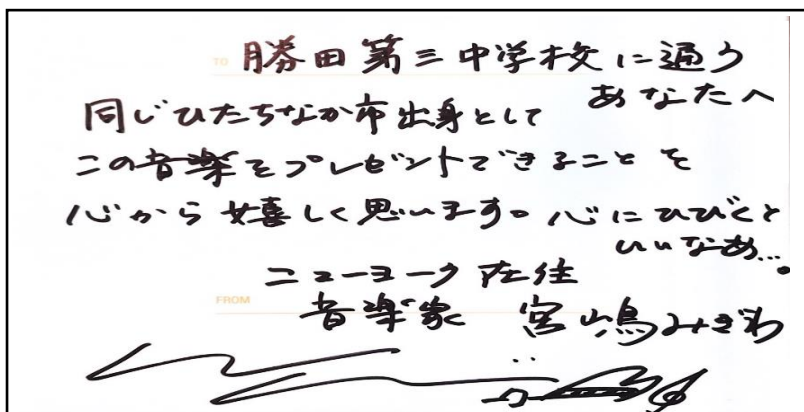 TO 勝田第三中学校に通う
あなたへ
同じひたちなか市出身として
この音楽をプレゼントできることを
心から嬉しく思います。心にひびくと
いいなあ...。
ニューヨーク在住
FROM
音楽家 宮嶋みぎわ